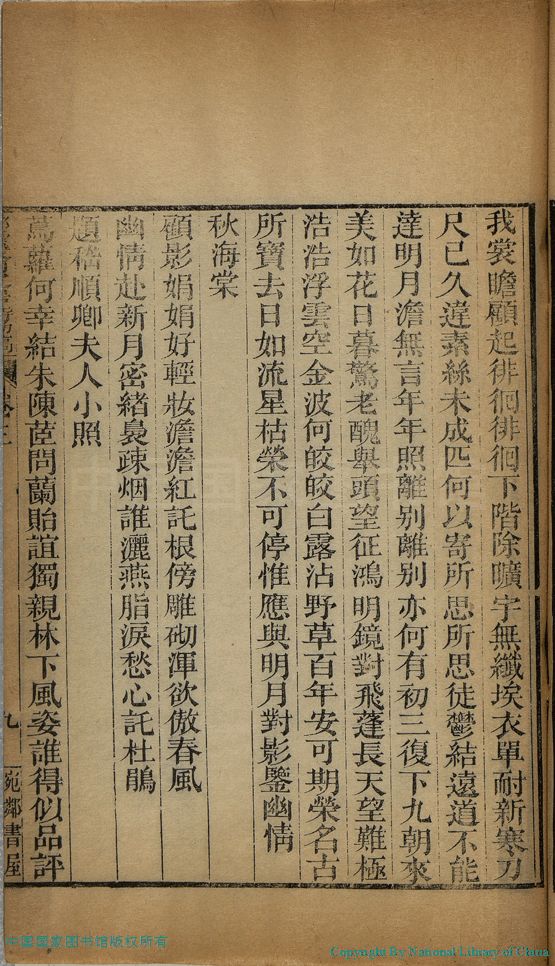 我裳瞻顧起徘徊徘徊下階除曠宇無纖埃衣單耐新寒刀
尺已久違素絲未成匹何以寄所思所思徒鬱結遠道不能
達明月澹無言年年照離別離別亦何有初三復下九朝來
美如花日暮驚老醜舉頭望征鴻明鏡對飛蓬長天望難極
浩浩浮雲空金波何皎皎白露沾野草百年安可期榮名古
所寶去日如流星枯榮不可停惟應與明月對影鑒幽情
秋海棠
顧影娟娟好輕妝澹澹紅託根傍雕砌渾欲傲春風
幽情赴新月密緒裊疎烟誰灑燕脂淚愁心託杜鵑
題稽順卿夫人小照
蔦蘿何幸結朱陳茝問蘭貽誼獨親林下風姿誰得似品評
卷三
九
宛鄰書屋
中国国家图书馆版权所有
Copyright By National Library of China